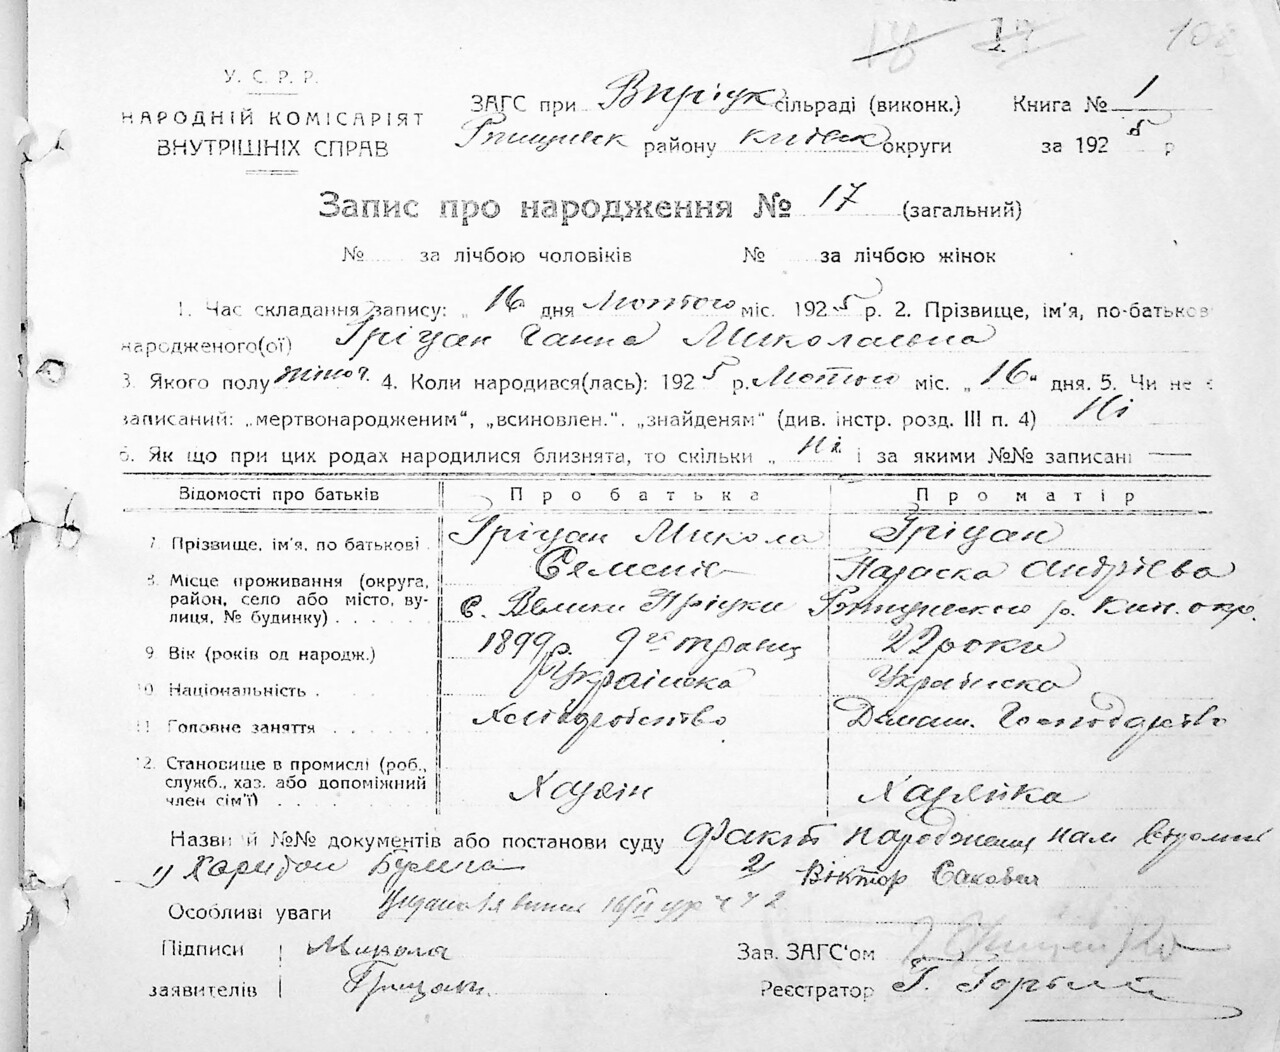 17
У. С. Р. Р.
НАРОДНІЙ КОМІСАРІЯТ
ВНУТРІШНІХ СПРАВ
ЗАГС при В Пріцук сільраді (виконк.) Книга № 1
району округи за 1925 р
Запис про народження № 17 (загальний)
№ за лічбою чоловіків № за лічбою жінок
1. Час складання запису: „16 дня Лютого міс. 1925 р. 2. Прізвище, ім'я, по-батьков
народженого(ої) Гріцан Ганна Миколаевна
3. Якого полу жіноч. 4. Коли народився(лась): 1925 р. Лютого міс. „16" дня. 5. Чи не є
записаний: „мертвонародженим", „всиновлен.". „знайденям" (див. інстр. розд. III п. 4) Ні
6. Як що при цих родах народилися близнята, то скільки „ Ні і за якими №№ записані —
Відомості про батьків Про батька Про матір
7. Прізвище, ім'я, по батькові Гріцан Микола Гріцан
Параска Андрієва
8. Місце проживання (округа, район, село або місто, вулиця, № будинку) с. Велики Пріцки р. Киів. окр.
9. Вік (років од народж.) 1899 р. 9го 22 роки
10. Національність Українска Українска
11. Головне заняття Хліборобство Домаш. Господарство
12. Становище в промислі (роб., служб., хаз. або допоміжний член сім'ї) Хазяін Хазяйка
Назви й №№ документів або постанови суду Факт народження нам відомий
1) Харитон 2) Віктор
Особливі уваги
Підписи Микола Зав. ЗАГС'ом
заявителів Грицан Реєстратор Г.